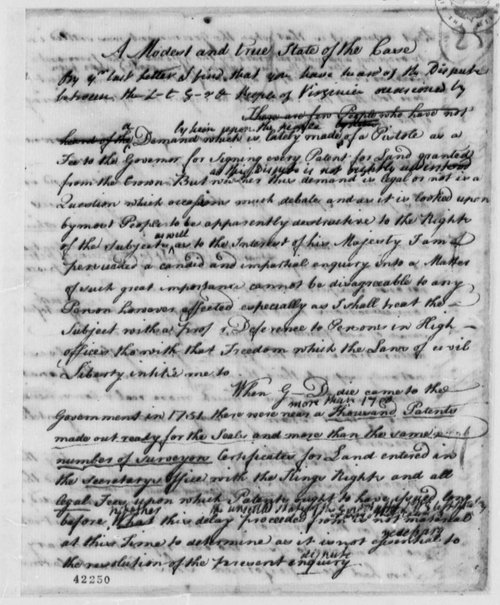 A Modest and true State of the Case
By yr. last letter I find that you have heard of the Dispute
between the L-t G-r & People of Virginia occasioned by
There are few People who have not
heard of the Demand which is lately made of a Pistole as a
Fee to the Governor for Signing every Patent for Land granted
from the Crown. But whether this demand is legal or not is a
Question which occasions much debate and as it is looked upon
by most People to be apparently destructive to the Rights
of the Subject as well as to the Interest of his Majesty I am
persuaded a candid and impartial enquiry into a Matter
of such great importance cannot be disagreeable to any
Person however affected especially as I shall treat the
Subject with a Deference to Persons in High
offices tho with that Freedom which the Laws of civil
Liberty entitle me to
When G D-die came to the
more than 17
Government in 1751 there were near a Thousand Patents
made out ready for the Seals and more than the same
number of Surveyors Certificates for Land entered in
the Secretarys Office with the Kings Rights and all
legal Fees upon which Patents ought to have issued long
before, whether
What this delay proceeded from is not material
necessary
at this Time to determine as it is not essential to
dispute
the resolution of the present enquiry
42250